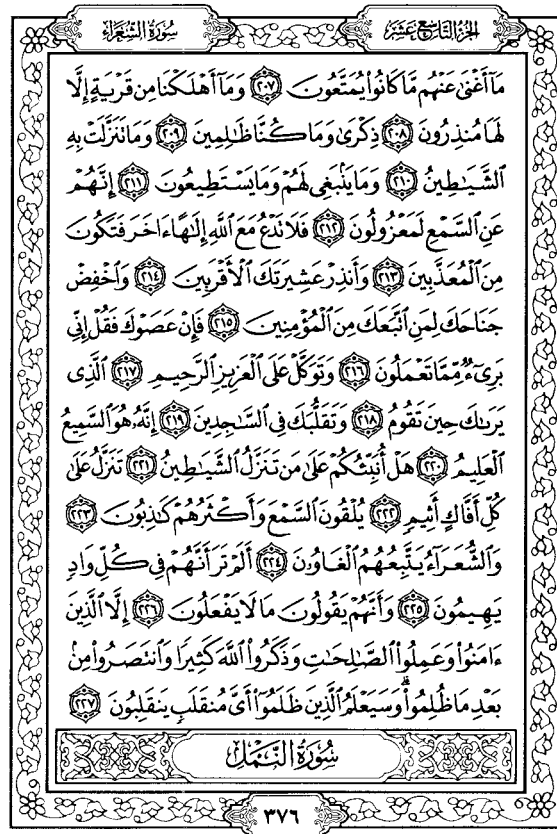 سُورَةُ الشُّعَرَاءِ
الجُزْءُ التَّاسِعَ عَشَرَ
مَآ أَغْنَىٰ عَنْهُم مَّا كَانُوا۟ يُمَتَّعُونَ ﴿٢٠٧﴾ وَمَآ أَهْلَكْنَا مِن قَرْيَةٍ إِلَّا
لَهَا مُنذِرُونَ ﴿٢٠٨﴾ ذِكْرَىٰ وَمَا كُنَّا ظَـٰلِمِينَ ﴿٢٠٩﴾ وَمَا تَنَزَّلَتْ بِهِ
ٱلشَّيَـٰطِينُ ﴿٢١٠﴾ وَمَا يَنۢبَغِى لَهُمْ وَمَا يَسْتَطِيعُونَ ﴿٢١١﴾ إِنَّهُمْ
عَنِ ٱلسَّمْعِ لَمَعْزُولُونَ ﴿٢١٢﴾ فَلَا تَدْعُ مَعَ ٱللَّهِ إِلَـٰهًا ءَاخَرَ فَتَكُونَ
مِنَ ٱلْمُعَذَّبِينَ ﴿٢١٣﴾ وَأَنذِرْ عَشِيرَتَكَ ٱلْأَقْرَبِينَ ﴿٢١٤﴾ وَٱخْفِضْ
جَنَاحَكَ لِمَنِ ٱتَّبَعَكَ مِنَ ٱلْمُؤْمِنِينَ ﴿٢١٥﴾ فَإِنْ عَصَوْكَ فَقُلْ إِنِّى
بَرِىٓءٌ مِّمَّا تَعْمَلُونَ ﴿٢١٦﴾ وَتَوَكَّلْ عَلَى ٱلْعَزِيزِ ٱلرَّحِيمِ ﴿٢١٧﴾ ٱلَّذِى
يَرَىٰكَ حِينَ تَقُومُ ﴿٢١٨﴾ وَتَقَلُّبَكَ فِى ٱلسَّـٰجِدِينَ ﴿٢١٩﴾ إِنَّهُۥ هُوَ ٱلسَّمِيعُ
ٱلْعَلِيمُ ﴿٢٢٠﴾ هَلْ أُنَبِّئُكُمْ عَلَىٰ مَن تَنَزَّلُ ٱلشَّيَـٰطِينُ ﴿٢٢١﴾ تَنَزَّلُ عَلَىٰ
كُلِّ أَفَّاكٍ أَثِيمٍ ﴿٢٢٢﴾ يُلْقُونَ ٱلسَّمْعَ وَأَكْثَرُهُمْ كَـٰذِبُونَ ﴿٢٢٣﴾
وَٱلشُّعَرَآءُ يَتَّبِعُهُمُ ٱلْغَاوُۥنَ ﴿٢٢٤﴾ أَلَمْ تَرَ أَنَّهُمْ فِى كُلِّ وَادٍ
يَهِيمُونَ ﴿٢٢٥﴾ وَأَنَّهُمْ يَقُولُونَ مَا لَا يَفْعَلُونَ ﴿٢٢٦﴾ إِلَّا ٱلَّذِينَ
ءَامَنُوا۟ وَعَمِلُوا۟ ٱلصَّـٰلِحَـٰتِ وَذَكَرُوا۟ ٱللَّهَ كَثِيرًا وَٱنتَصَرُوا۟ مِنۢ
بَعْدِ مَا ظُلِمُوا۟ ۗ وَسَيَعْلَمُ ٱلَّذِينَ ظَلَمُوٓا۟ أَىَّ مُنقَلَبٍ يَنقَلِبُونَ ﴿٢٢٧﴾
سُورَةُ النَّمْلِ
٣٧٦